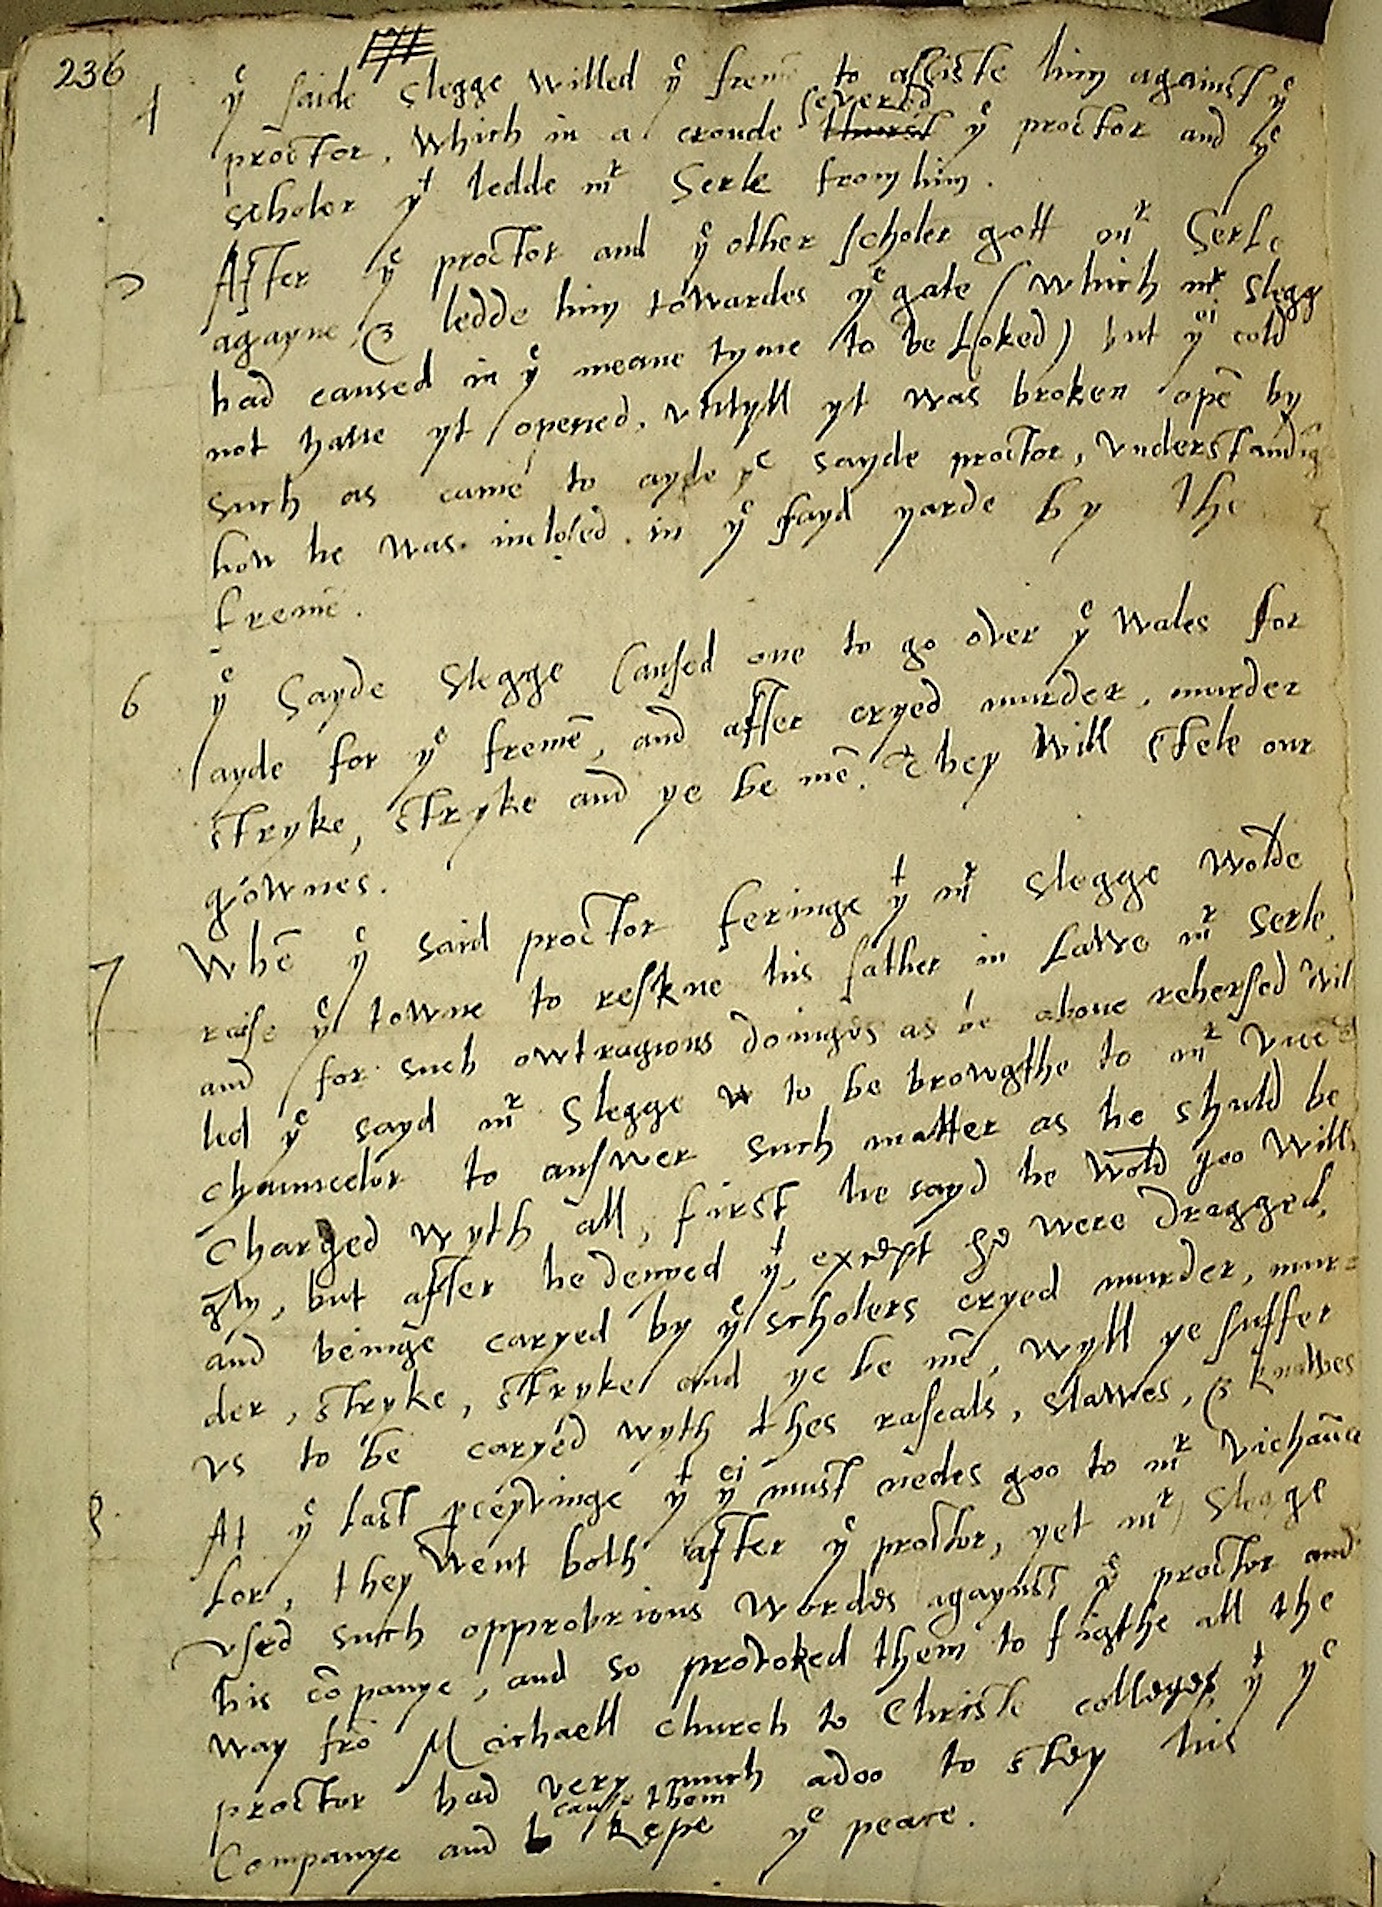 236
4 yͤ saide Slegge willed yͤ freme to assiste him against yͤ
proctor, which in a croude severed thurst yͤ proctor and yͤ
scholer yᵗ ledde mʳ Serle from him.
5 After yͤ proctor and yͤ other scholer gott mʳ Serle
agayne, & ledde him towardes yͤ gate (which mʳ Slegg
had caused in yͤ meane tyme to be loked) but yᵉⁱ cold
not haue yt opened, vntyll yt was broken opē by
such as came to ayde yͤ sayde proctor, vnderstandīg
how he was inclosed in yͤ sayd yarde by the
fremē.
6 yͤ Sayde Slegge caused one to go over yͤ wales for
ayde for yͤ fremē, and after cryed murder, murder
stryke, stryke and ye be mē. They will stele our
gownes.
7 Whē yͤ said proctor feringe yᵗ mʳ Slegge wolde
raise yͤ towne to reskue his father in Lawe mʳ Serle,
and for such owtragious doinges as be aboue rehersed wil
led yͤ sayd mʳ Slegge to be browgthe to mʳ vice
chauncelor to answer such matter as he shuld be
charged wyth all, first he sayd he wold goo willī
gly, but after he denyed yᵗ, except he were dragged,
and beinge caryed by yͤ scholers cryed murder, mur=
der, stryke, stryke and ye be mē, wyll ye suffer
vs to be caryed wyth thes rascals, slawes, & knawes
8 At yͤ last pceyvinge yᵗ yᵉⁱ must nedes goo to mʳ vichaūce
lor, they went both after yͤ proctor, yet mʳ Slegge
vsed such opprobrious wordes agaynst yͤ proctor and
his cōpanye, and so provoked them to figthe all the
way frō Michaell church to Christe colleges, yᵗ yͤ
proctor had very much adoo to stey his
Companye and cause them kepe yͤ peace.